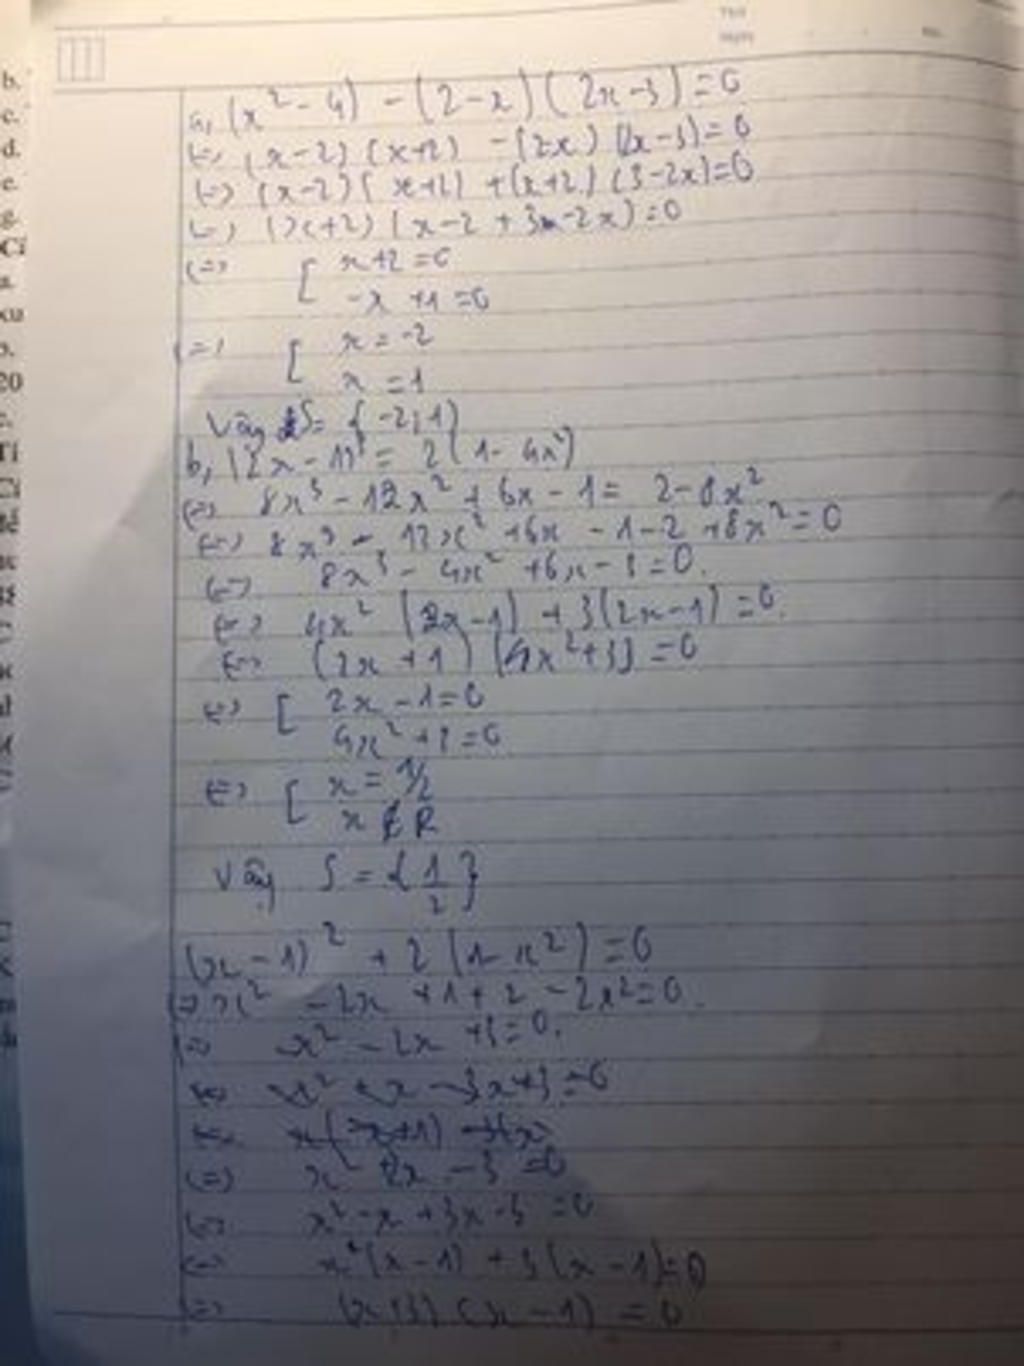 a, (x² - 4) - (2 - x)(2x - 3) = 0
<=> (x - 2)(x+2) - (2x)(2x - 3) = 0
<=> (x - 2)(x+2) + (x+2)(3-2x) = 0
<=> (x+2)(x - 2 + 3 - 2x) = 0
<=> [ x+2 = 0
-x + 1 = 0
<=> [ x = -2
x = 1
Vậy S = { -2; 1}
b, (2x - 1)³ = 2(1 - 4x²)
<=> 8x³ - 12x² + 6x - 1 = 2 - 8x²
<=> 8x³ - 12x² + 6x - 1 - 2 + 8x² = 0
<=> 8x³ - 4x² + 6x - 3 = 0.
<=> 4x² (2x - 1) + 3(2x - 1) = 0
<=> (2x + 1) (4x² + 3) = 0
<=> [ 2x - 1 = 0
4x² + 3 = 0
<=> [ x = 1/2
x ∉ R
Vậy S = { 1/2 }
(x - 1)² + 2 (1 - x²) = 0
=> x² - 2x + 1 + 2 - 2x² = 0.
<=> -x² - 2x + 3 = 0.
<=> -x² + x - 3x + 3 = 0
<=> x² + 2x - 3 = 0
<=> x² - x + 3x - 3 = 0
<=> x(x - 1) + 3(x - 1) = 0
<=> (x+3)(x - 1) = 0
b.
c.
d.
e.
g.